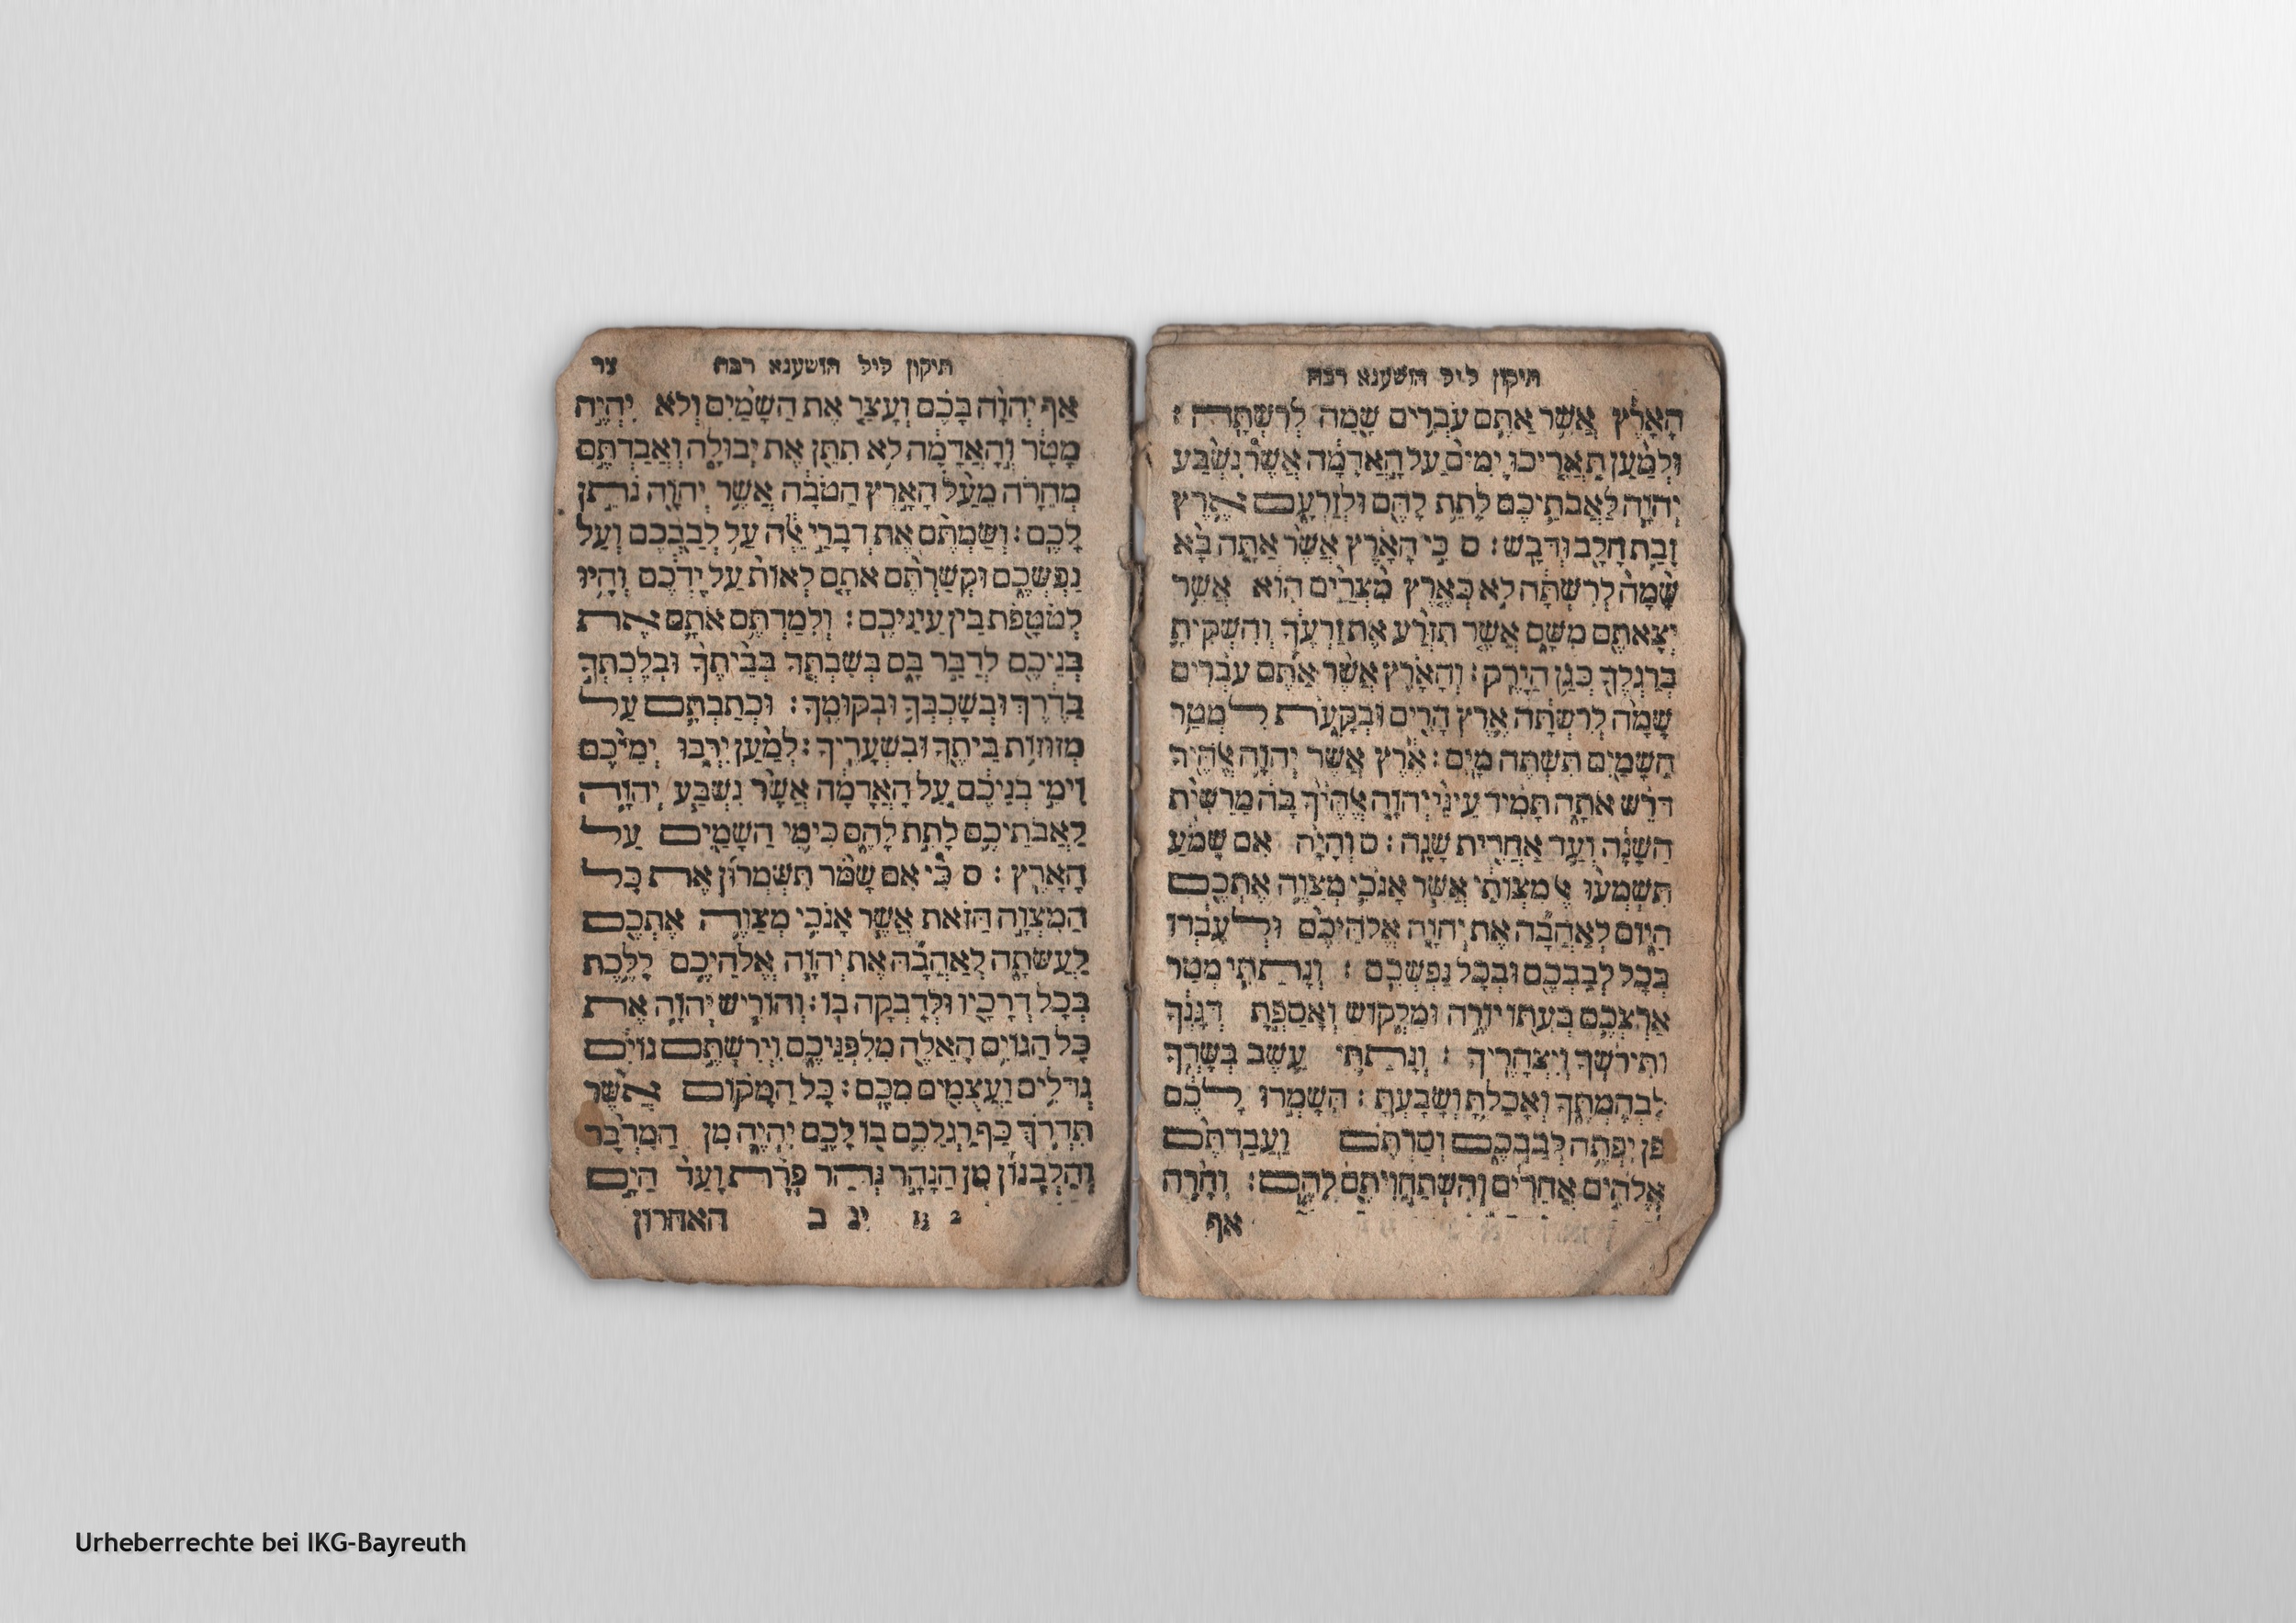 תיקון ליל הושענא רבה
הָאָרֶץ אֲשֶׁר אַתֶּם עֹבְרִים שָׁמָּה לְרִשְׁתָּהּ :
וּלְמַעַן תַּאֲרִיכוּ יָמִים עַל הָאֲדָמָה אֲשֶׁר נִשְׁבַּע
יְהוָֹה לַאֲבֹתֵיכֶם לָתֵת לָהֶם וּלְזַרְעָם אֶרֶץ
זָבַת חָלָב וּדְבָשׁ : ס כִּי הָאָרֶץ אֲשֶׁר אַתָּה בָא
שָׁמָּה לְרִשְׁתָּהּ לֹא כְאֶרֶץ מִצְרַיִם הִוא אֲשֶׁר
יְצָאתֶם מִשָּׁם אֲשֶׁר תִּזְרַע אֶת זַרְעֲךָ וְהִשְׁקִיתָ
בְרַגְלְךָ כְּגַן הַיָּרָק : וְהָאָרֶץ אֲשֶׁר אַתֶּם עֹבְרִים
שָׁמָּה לְרִשְׁתָּהּ אֶרֶץ הָרִים וּבְקָעֹת לִמְטַר
הַשָּׁמַיִם תִּשְׁתֶּה מָּיִם : אֶרֶץ אֲשֶׁר יְהוָֹה אֱלֹהֶיךָ
דֹּרֵשׁ אֹתָהּ תָּמִיד עֵינֵי יְהוָֹה אֱלֹהֶיךָ בָּהּ מֵרֵשִׁית
הַשָּׁנָה וְעַד אַחֲרִית שָׁנָה : ס וְהָיָה אִם שָׁמֹעַ
תִּשְׁמְעוּ אֶל מִצְוֹתַי אֲשֶׁר אָנֹכִי מְצַוֶּה אֶתְכֶם
הַיּוֹם לְאַהֲבָה אֶת יְהוָֹה אֱלֹהֵיכֶם וּלְעָבְדוֹ
בְּכָל לְבַבְכֶם וּבְכָל נַפְשְׁכֶם : וְנָתַתִּי מְטַר
אַרְצְכֶם בְּעִתּוֹ יוֹרֶה וּמַלְקוֹשׁ וְאָסַפְתָּ דְגָנֶךָ
וְתִירֹשְׁךָ וְיִצְהָרֶךָ : וְנָתַתִּי עֵשֶׂב בְּשָׂדְךָ
לִבְהֶמְתֶּךָ וְאָכַלְתָּ וְשָׂבָעְתָּ : הִשָּׁמְרוּ לָכֶם
פֶּן יִפְתֶּה לְבַבְכֶם וְסַרְתֶּם וַעֲבַדְתֶּם
אֱלֹהִים אֲחֵרִים וְהִשְׁתַּחֲוִיתֶם לָהֶם : וְחָרָה
אף
תיקון ליל הושענא רבה צר
אַף יְהוָֹה בָּכֶם וְעָצַר אֶת הַשָּׁמַיִם וְלֹא יִהְיֶה
מָטָר וְהָאֲדָמָה לֹא תִתֵּן אֶת יְבוּלָהּ וַאֲבַדְתֶּם
מְהֵרָה מֵעַל הָאָרֶץ הַטֹּבָה אֲשֶׁר יְהוָֹה נֹתֵן
לָכֶם : וְשַׂמְתֶּם אֶת דְּבָרַי אֵלֶּה עַל לְבַבְכֶם וְעַל
נַפְשְׁכֶם וּקְשַׁרְתֶּם אֹתָם לְאוֹת עַל יֶדְכֶם וְהָיוּ
לְטוֹטָפֹת בֵּין עֵינֵיכֶם : וְלִמַּדְתֶּם אֹתָם אֶת
בְּנֵיכֶם לְדַבֵּר בָּם בְּשִׁבְתְּךָ בְּבֵיתֶךָ וּבְלֶכְתְּךָ
בַדֶּרֶךְ וּבְשָׁכְבְּךָ וּבְקוּמֶךָ : וּכְתַבְתָּם עַל
מְזוּזוֹת בֵּיתֶךָ וּבִשְׁעָרֶיךָ : לְמַעַן יִרְבּוּ יְמֵיכֶם
וִימֵי בְנֵיכֶם עַל הָאֲדָמָה אֲשֶׁר נִשְׁבַּע יְהוָֹה
לַאֲבֹתֵיכֶם לָתֵת לָהֶם כִּימֵי הַשָּׁמַיִם עַל
הָאָרֶץ : ס כִּי אִם שָׁמֹר תִּשְׁמְרוּן אֶת כָּל
הַמִּצְוָה הַזֹּאת אֲשֶׁר אָנֹכִי מְצַוֶּה אֶתְכֶם
לַעֲשֹׂתָהּ לְאַהֲבָה אֶת יְהוָֹה אֱלֹהֵיכֶם לָלֶכֶת
בְּכָל דְּרָכָיו וּלְדָבְקָה בוֹ : וְהוֹרִישׁ יְהוָֹה אֶת
כָּל הַגּוֹיִם הָאֵלֶּה מִלִּפְנֵיכֶם וִירִשְׁתֶּם גּוֹיִם
גְּדֹלִים וַעֲצֻמִים מִכֶּם : כָּל הַמָּקוֹם אֲשֶׁר
תִּדְרֹךְ כַּף רַגְלְכֶם בּוֹ לָכֶם יִהְיֶה מִן הַמִּדְבָּר
וְהַלְּבָנוֹן מִן הַנָּהָר נְהַר פְּרָת וְעַד הַיָּם
יג ב האחרון
Urheberrechte bei IKG-Bayreuth